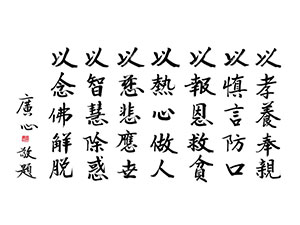 以孝養奉親
以慎言防口
以報恩救貧
以熱心做人
以慈悲應世
以智慧除惑
以念佛解脱
廣心敬題